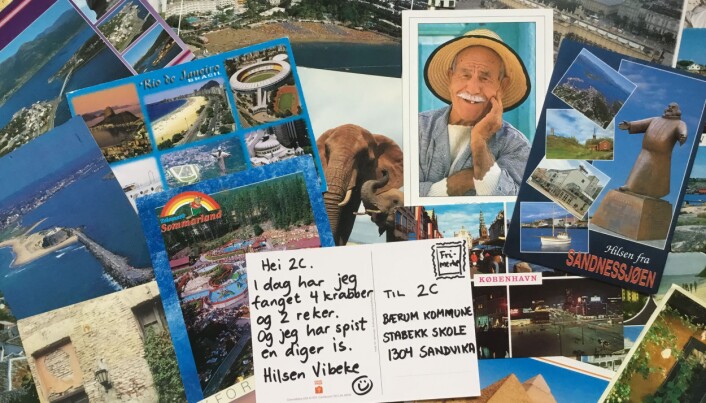 Rio de Janeiro
BRASIL
Sommarland
Hilsen fra
SANDNESSJØEN
KØBENHAVN
Hei 2C.
I dag har jeg
fanget 4 krabber
og 2 reker.
Og jeg har spist
en diger is.
Hilsen Vibeke
Fri-
merke
TIL 2C
BÆRUM KOMMUNE
STABEKK SKOLE
1304 SANDVIKA